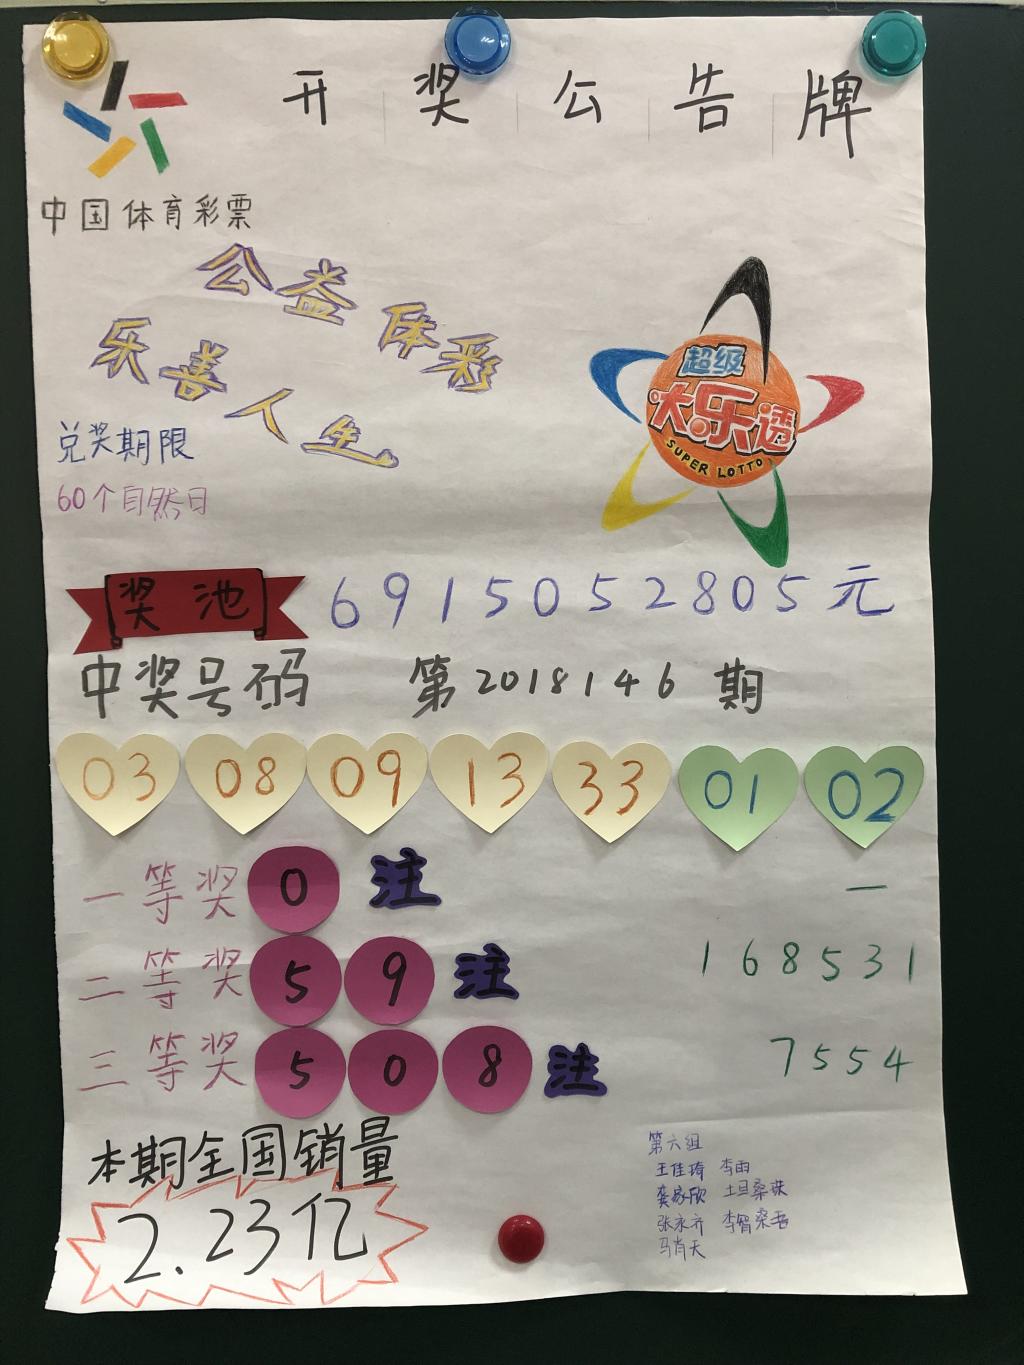 开奖公告牌
中国体育彩票
公益体彩
乐善人生
兑奖期限
60个自然日
超级
大乐透
SUPER LOTTO
奖池 6915052805元
中奖号码 第2018146期
03 08 09 13 33 01 02
一等奖 0 注 —
二等奖 59 注 168531
三等奖 508 注 7554
本期全国销量
2.23亿
第六组
王佳琦 李雨
龚家欣 土旦桑珠
张永齐 李智桑吾
马肖天